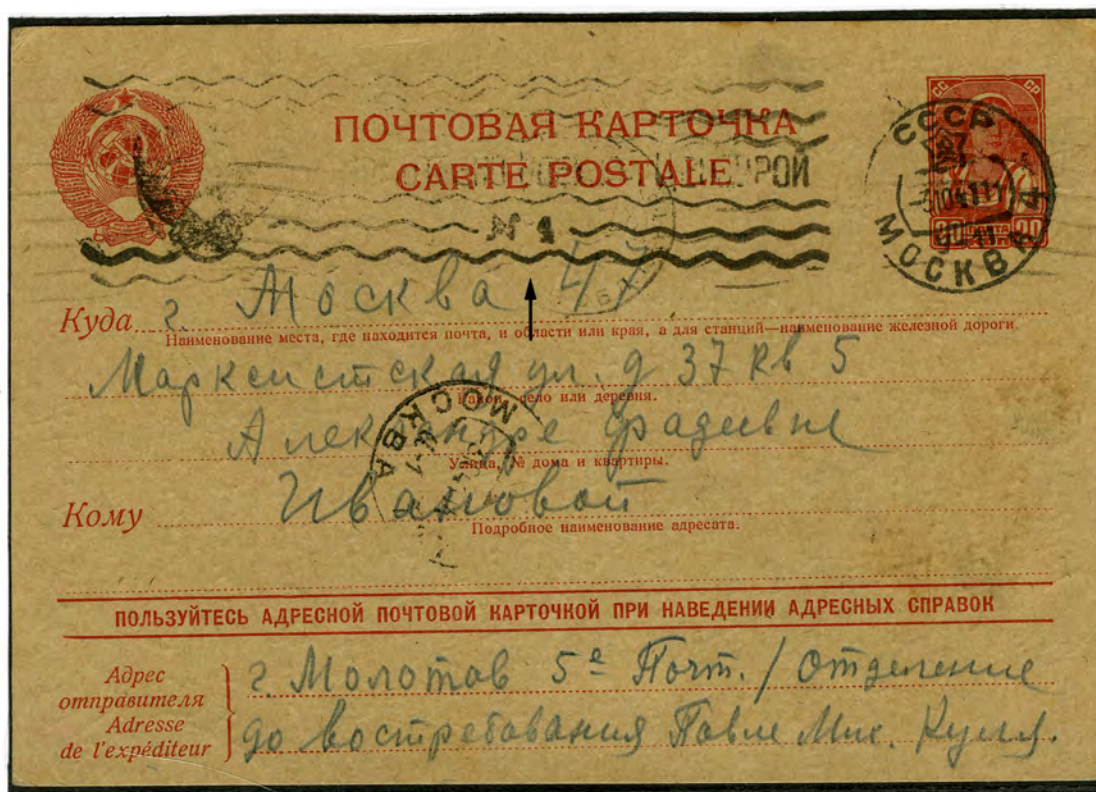 ПОЧТОВАЯ КАРТОЧКА
CARTE POSTALE
№ 1
СС СР
СССР
МОСКВА
20
Куда г. Москва 47
Наименование места, где находится почта, и области или края, а для станций—наименование железной дороги.
Марксистская ул. д 37 кв 5
Район, село или деревня.
Александре Фадеевне
Улица, № дома и квартиры.
МОСКВА
Кому Ивановой
Подробное наименование адресата.
ПОЛЬЗУЙТЕСЬ АДРЕСНОЙ ПОЧТОВОЙ КАРТОЧКОЙ ПРИ НАВЕДЕНИИ АДРЕСНЫХ СПРАВОК
Адрес отправителя
Adresse de l'expéditeur
г. Молотов 5е Почт. / Отделение
до востребования Мих.